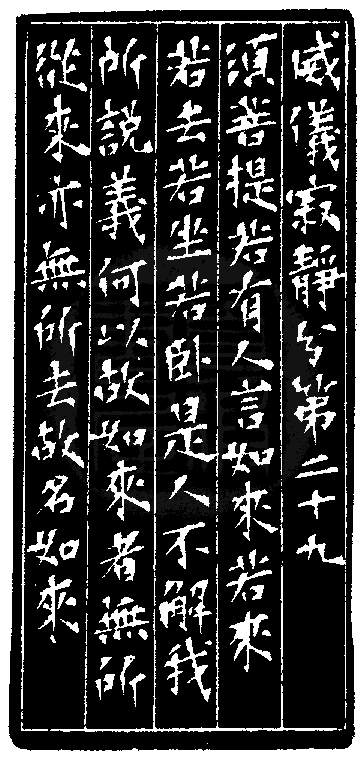 威儀寂靜分第二十九
須菩提若有人言如來若來
若去若坐若卧是人不解我
所說義何以故如來者無所
從來亦無所去故名如來